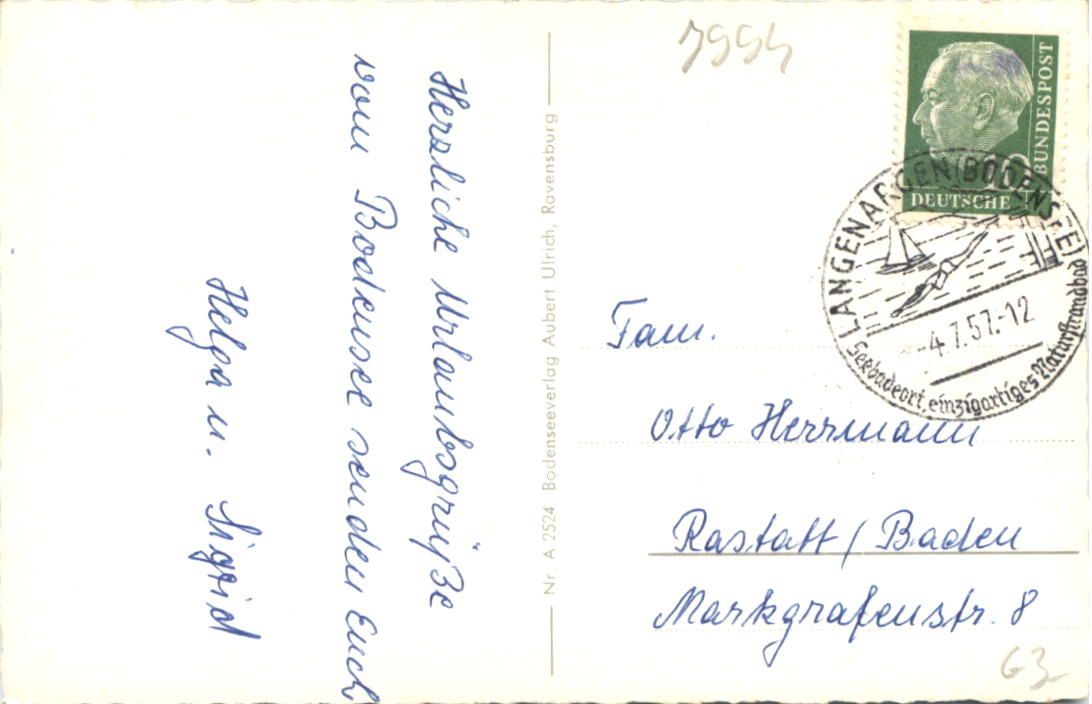 Herzliche Urlaubsgrüße
vom Bodensee senden Euch
Helga u. Sigrid
Nr. A 2524 Bodenseeverlag Aubert Ulrich, Ravensburg
7994
DEUTSCHE
BUNDESPOST
10
LANGENARGEN (BODENSEE)
-4.7.57.-12
Seebadeort, einzigartiges Naturstrandbad
Fam.
Otto Herrmann
Rastatt / Baden
Markgrafenstr. 8